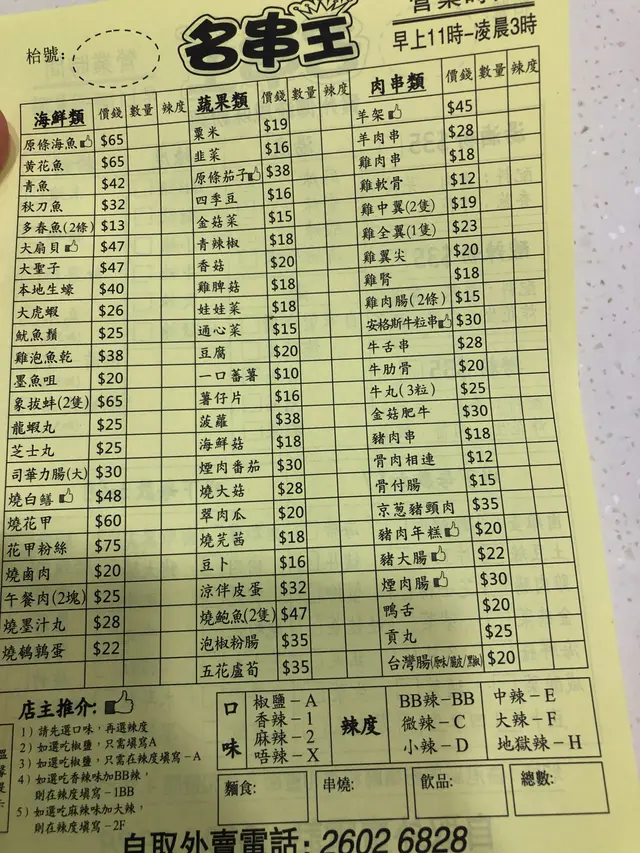 名串王
營業時
早上11時-凌晨3時
枱號:
海鮮類 價錢 數量 辣度
原條海魚 $65
黄花魚 $65
青魚 $42
秋刀魚 $32
多春魚(2條) $13
大扇貝 $47
大聖子 $47
本地生蠔 $40
大虎蝦 $26
魷魚鬚 $25
雞泡魚乾 $38
墨魚咀 $20
象拔蚌(2隻) $65
龍蝦丸 $25
芝士丸 $25
司華力腸(大) $30
燒白鱔 $48
燒花甲 $60
花甲粉絲 $75
燒鹵肉 $20
午餐肉(2塊) $25
燒墨汁丸 $28
燒鵪鶉蛋 $22
蔬果類 價錢 數量 辣度
粟米 $19
韭菜 $16
原條茄子 $38
四季豆 $16
金菇菜 $15
青辣椒 $18
香菇 $20
雞脾菇 $18
娃娃菜 $18
通心菜 $15
豆腐 $20
一口蕃薯 $10
薯仔片 $16
菠蘿 $38
海鮮菇 $18
煙肉番茄 $30
燒大菇 $28
翠肉瓜 $20
燒芫茜 $18
豆卜 $16
涼伴皮蛋 $32
燒鮑魚(2隻) $47
泡椒粉腸 $35
五花蘆筍 $35
肉串類 價錢 數量 辣度
羊架 $45
羊肉串 $28
雞肉串 $18
雞軟骨 $12
雞中翼(2隻) $19
雞全翼(1隻) $23
雞翼尖 $20
雞腎 $18
雞肉腸(2條) $15
安格斯牛粒串 $30
牛舌串 $28
牛肋骨 $20
牛丸(3粒) $25
金菇肥牛 $30
豬肉串 $18
骨肉相連 $12
骨付腸 $15
京葱豬頸肉 $35
豬肉年糕 $20
豬大腸 $22
煙肉腸 $30
鴨舌 $20
貢丸 $25
台灣腸 $20
店主推介:
1) 請先選口味，再選辣度
2) 如選吃椒鹽，只需填寫A
3) 如選吃椒鹽，只需在辣度填寫-A
4) 如選吃香辣味加BB辣，
則在辣度填寫-1BB
5) 如選吃麻辣味加大辣，
則在辣度填寫-2F
口味
椒鹽-A
香辣-1
麻辣-2
唔辣-X
辣度
BB辣-BB
微辣-C
小辣-D
中辣-E
大辣-F
地獄辣-H
麵食:
串燒:
飲品:
總數:
自取外賣電話: 2602 6828